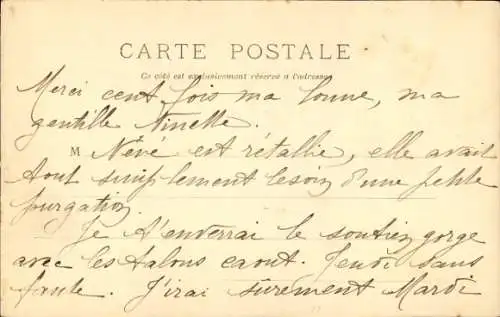 CARTE POSTALE
Ce côté est exclusivement réservé à l'adresse
Merci cent fois ma bonne, ma
gentille Ninette.
M Névé est rétablie, elle avait
tout simplement besoin d'une petite
purgation.
Je t'enverrai le soutien gorge
avec les talons caout. Jeudi sans
faute. J'irai surement Mardi